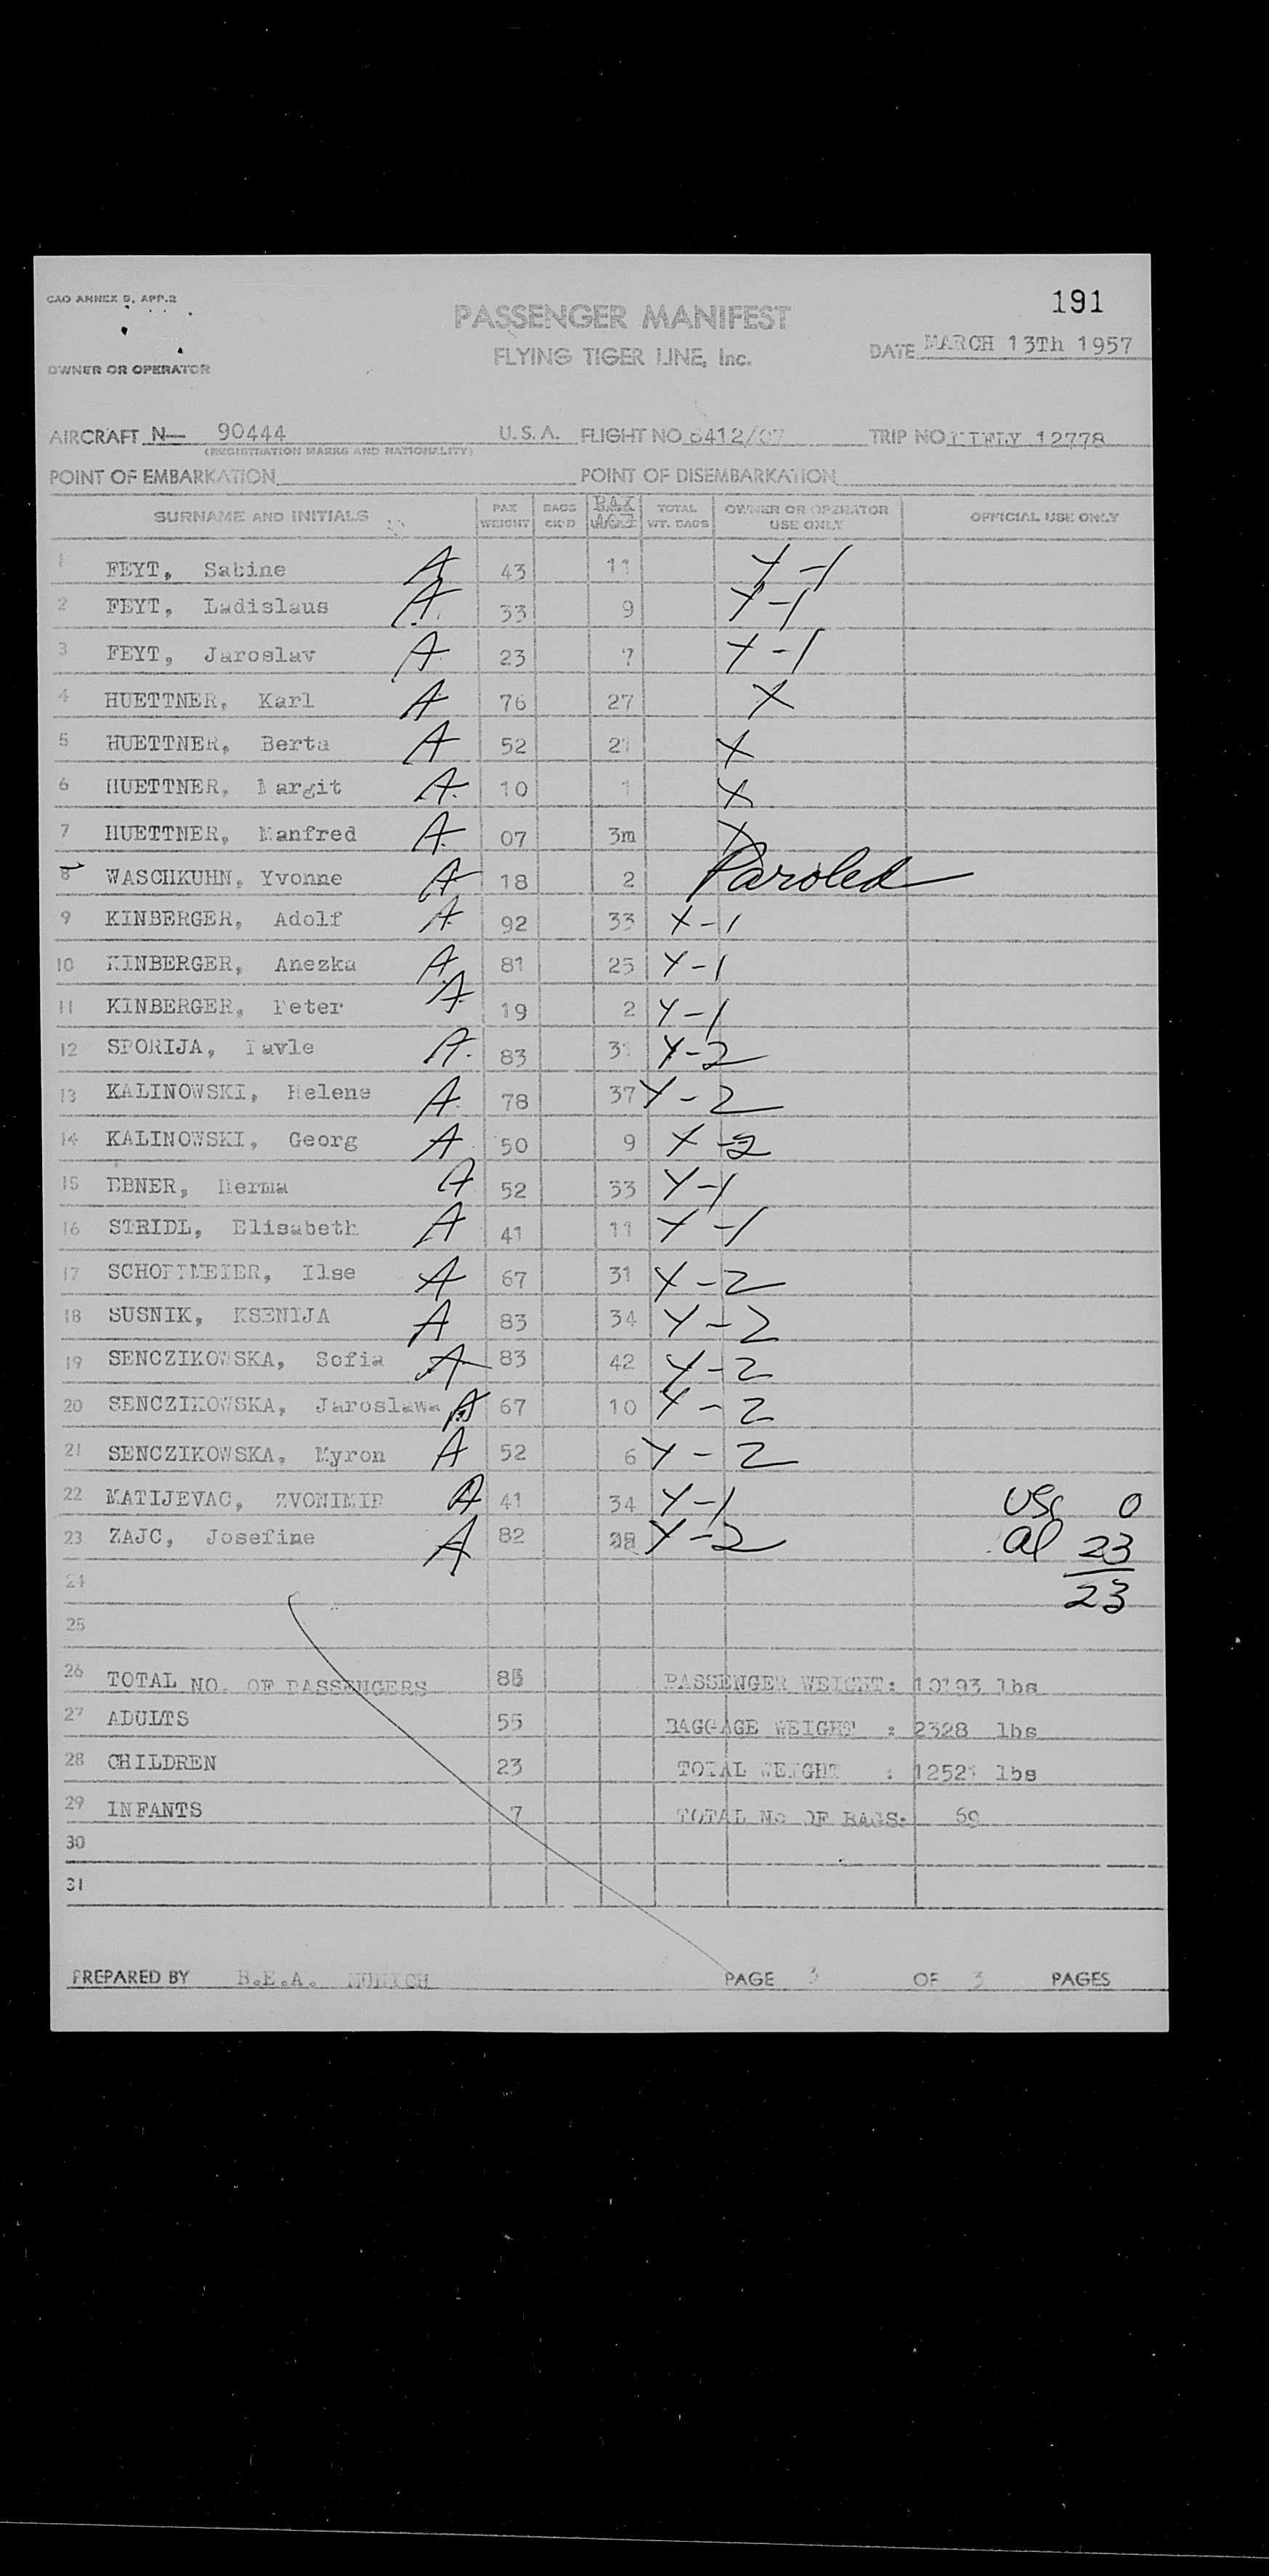 CAO ANNEX 9, APP.2
191
PASSENGER MANIFEST
FLYING TIGER LINE, Inc.
DATE MARCH 13Th 1957
OWNER OR OPERATOR
AIRCRAFT N— 90444 U.S.A. FLIGHT NO 6412/07 TRIP NO 12778
(REGISTRATION MARKS AND NATIONALITY)
POINT OF EMBARKATION POINT OF DISEMBARKATION
SURNAME AND INITIALS PAX WEIGHT BAGS CK'D TOTAL WT. BAGS OWNER OR OPERATOR USE ONLY OFFICIAL USE ONLY
1 FEYT, Sabine A 43 11 Y-1
2 FEYT, Ladislaus A 33 9 Y-1
3 FEYT, Jaroslav A 23 7 Y-1
4 HUETTNER, Karl A 76 27 X
5 HUETTNER, Berta A 52 21 X
6 HUETTNER, Margit A 10 1 X
7 HUETTNER, Manfred A 07 3m X
8 WASCHKUHN, Yvonne A 18 2 Paroled
9 KINBERGER, Adolf A 92 33 X-1
10 KINBERGER, Anezka A 81 25 Y-1
11 KINBERGER, Peter A 19 2 Y-1
12 SPORIJA, Pavle A 83 31 Y-2
13 KALINOWSKI, Helene A 78 37 Y-2
14 KALINOWSKI, Georg A 50 9 X-2
15 EBNER, Herma A 52 33 Y-1
16 STRIDL, Elisabeth A 41 11 Y-1
17 SCHOPTMEIER, Ilse A 67 31 Y-2
18 SUSNIK, KSENIJA A 83 34 Y-2
19 SENCZIKOWSKA, Sofia A 83 42 Y-2
20 SENCZIKOWSKA, Jaroslawa A 67 10 Y-2
21 SENCZIKOWSKA, Myron A 52 6 Y-2
22 MATIJEVAC, ZVONIMIR A 41 34 Y-1 USC 0
23 ZAJC, Josefine A 82 Y-2 al 23
24 23
25
26 TOTAL NO. OF PASSENGERS 85 PASSENGER WEIGHT: 10193 lbs
27 ADULTS 55 BAGGAGE WEIGHT : 2328 lbs
28 CHILDREN 23 TOTAL WEIGHT : 12521 lbs
29 INFANTS 7 TOTAL No OF BAGS:
30
31
PREPARED BY B.E.A. MUNICH PAGE 3 OF 3 PAGES